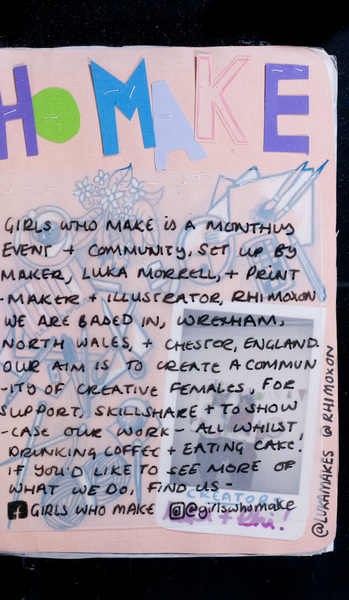 HO MAKE
GIRLS WHO MAKE IS A MONTHLY
EVENT + COMMUNITY, SET UP BY
MAKER, LUKA MORRELL, + PRINT
-MAKER + ILLUSTRATOR, RHI MOXON
WE ARE BASED IN, WREXHAM,
NORTH WALES, + CHESTER, ENGLAND.
OUR AIM IS TO CREATE A COMMUN
-ITY OF CREATIVE FEMALES, FOR
SUPPORT, SKILLSHARE + TO SHOW
-CASE OUR WORK - ALL WHILST,
DRINKING COFFEE + EATING CAKE!
IF YOU'D LIKE TO SEE MORE OF
WHAT WE DO, FIND US -
CREATORS
GIRLS WHO MAKE @girlswhomake
+ Rhi!
@LUKAMAKES @RHIMOXON